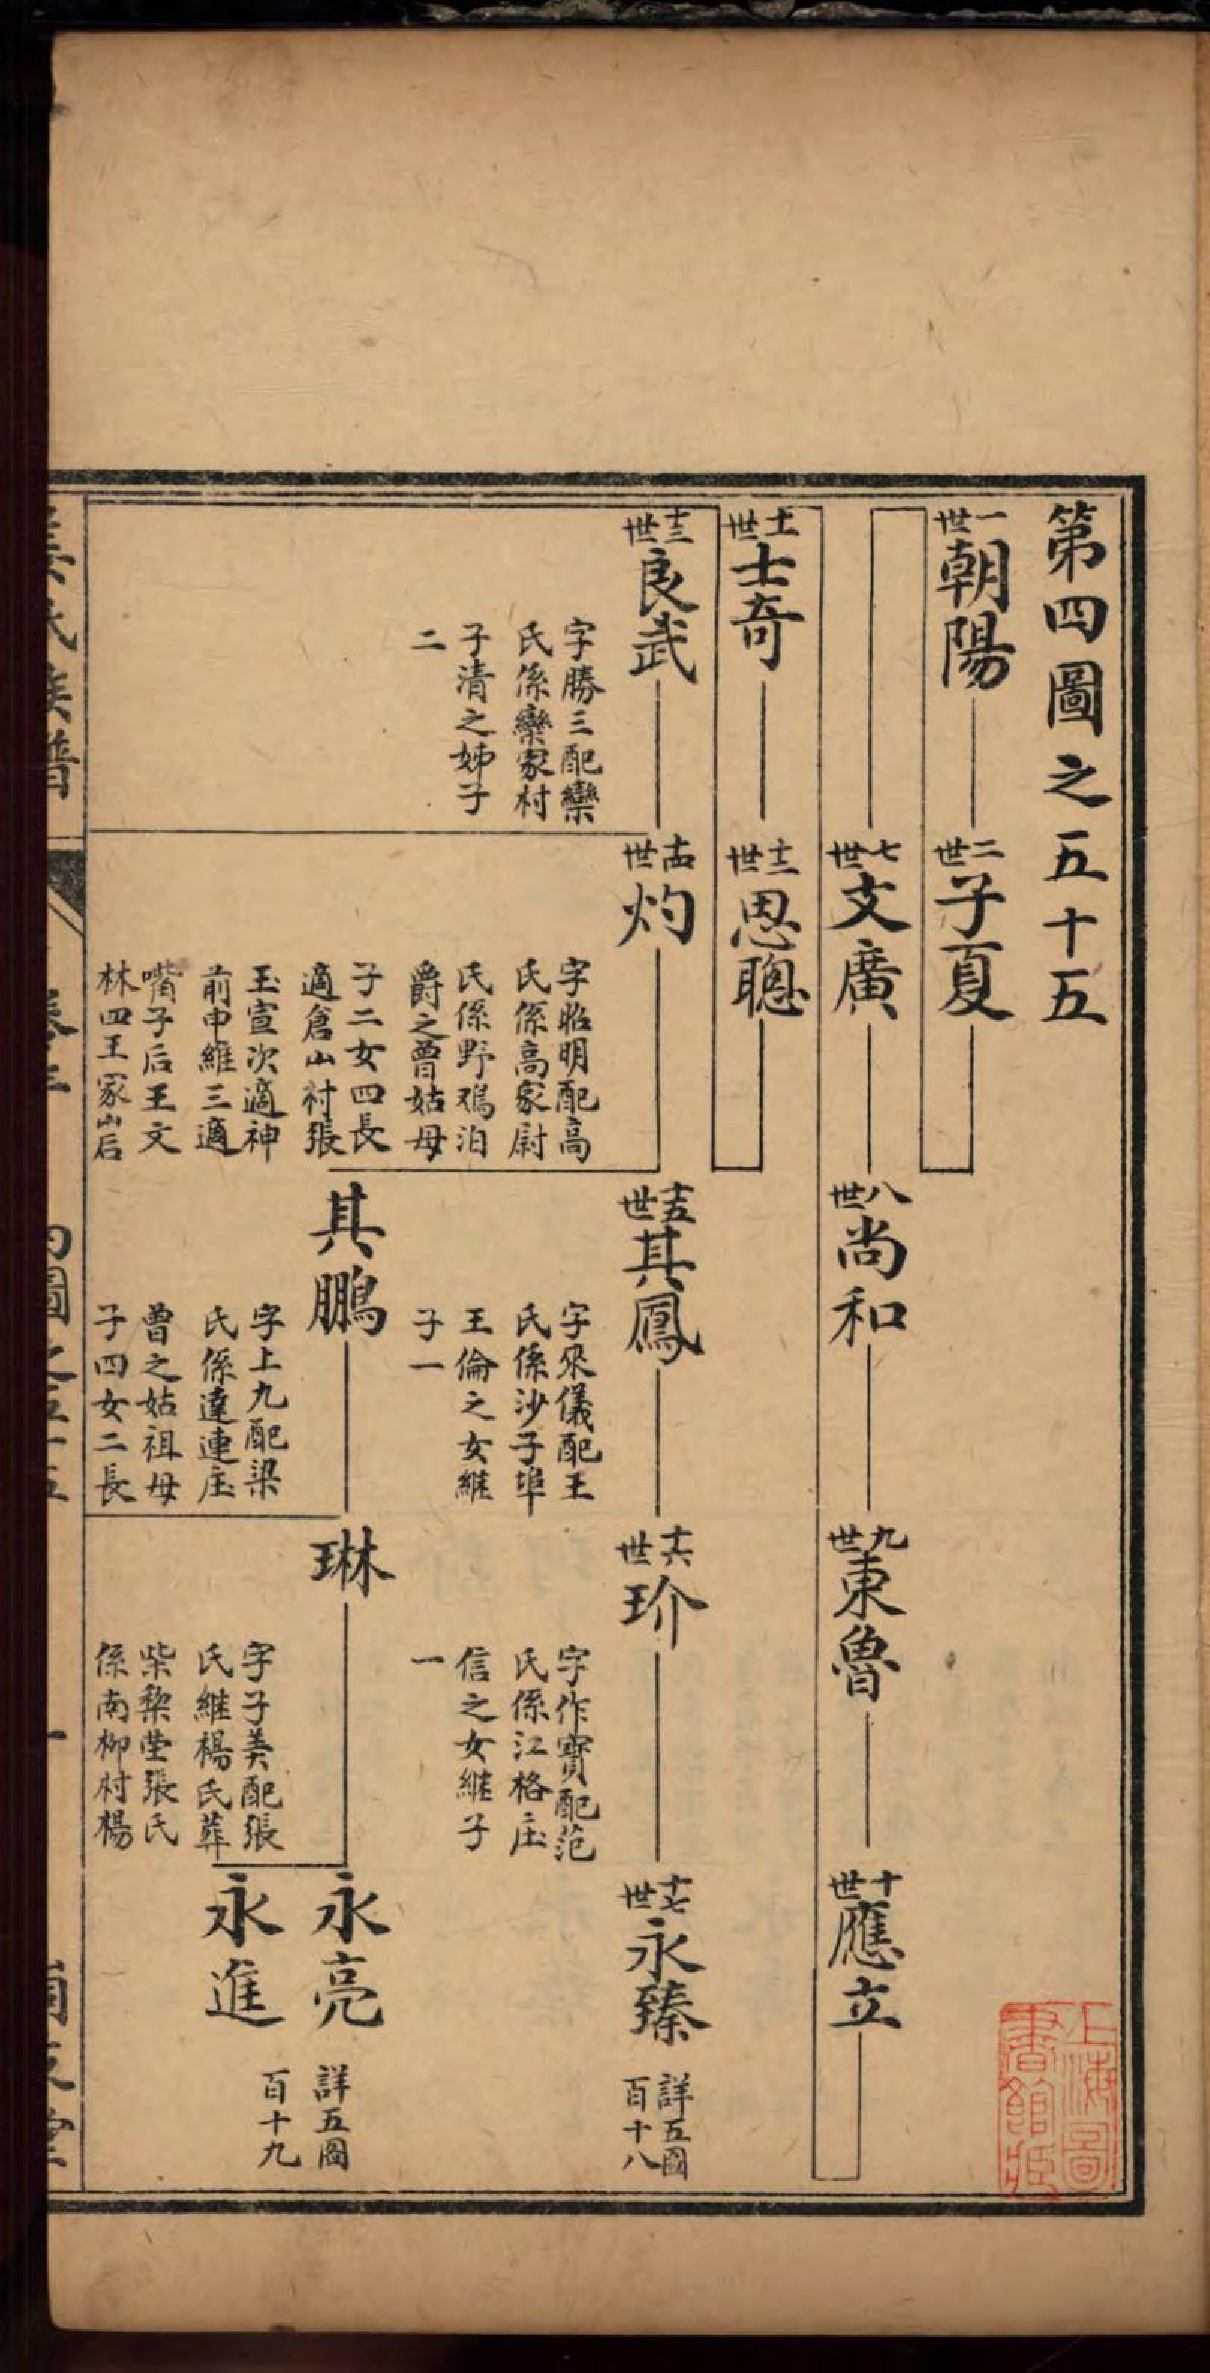 第四圖之五十五
一世 朝陽
二世 子夏
七世 文廣
八世 尚和
九世 東魯
十世 應立
十一世 士奇
十二世 思聰
十三世 良武
字勝三配欒
氏係欒家村
子清之姊子
二
十四世 灼
字昭明配高
氏係高家尉
氏係野鸡泊
爵之曾姑母
子二女四長
適倉山村張
玉宣次適神
前申維三適
嘴子后王文
林四王家山后
十五世 其鳳
字來儀配王
氏係沙子埠
王倫之女継
子一
十六世 玠
字作寳配范
氏係江格庄
信之女継子
一
十七世 永臻
詳五圖
百十八
其鵬
字上九配梁
氏係連庄
曾之姑祖母
子四女二長
琳
字子美配張
氏継楊氏葬
柴棃塋張氏
係南柳村楊
永亮
永進
詳五圖
百十九
氏族譜
圖之五十五
上海圖
書館藏